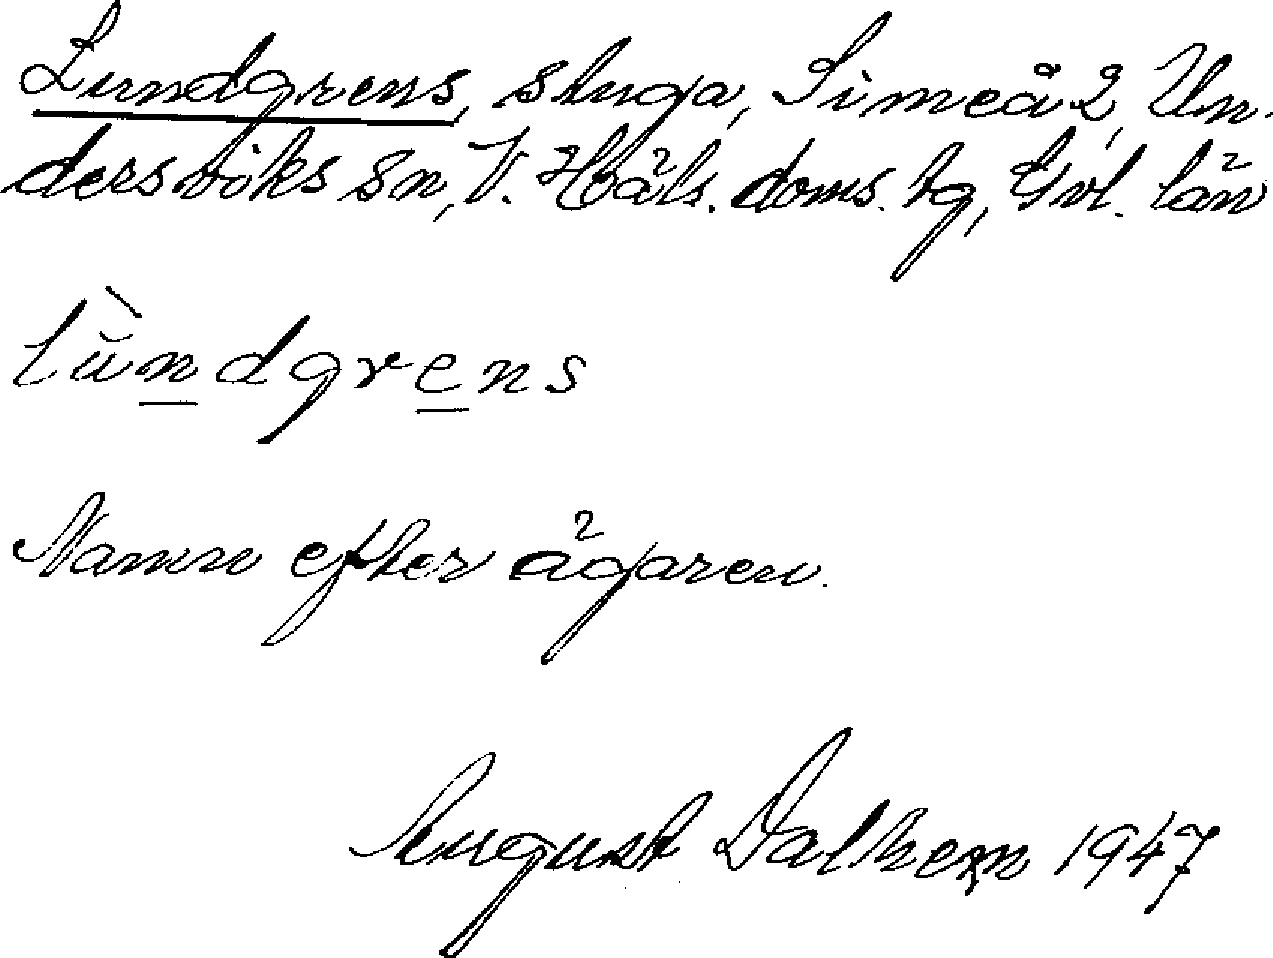 Lundgrens, stuga, Simeå 2, Un-
dersviks sn, V. Häls. doms. tg, Gvl. län
lùndgrens
Namn efter ägaren.
August Dalhem 1947